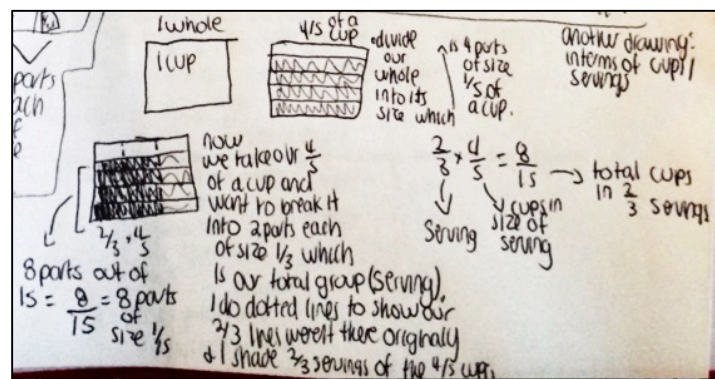 parts
ach
of
e
1 whole
1 cup
4/5 of a
cup
• divide
our
whole
into its
size which
is 4 parts
of size
1/5 of
a cup.
another drawing:
interms of cups/
servings
2/3 · 4/5
8 parts out of
15 = 8/15 = 8 parts
of
size 1/15
now
we take our 4/5
of a cup and
want to break it
into 2 parts each
of size 1/3 which
is our total group (serving).
I do dotted lines to show our
2/3 lines weren't there originally
& I shade 2/3 servings of the 4/5 cups
2/3 × 4/5 = 8/15 → total cups
in 2/3 servings
serving
cups in
size of
serving